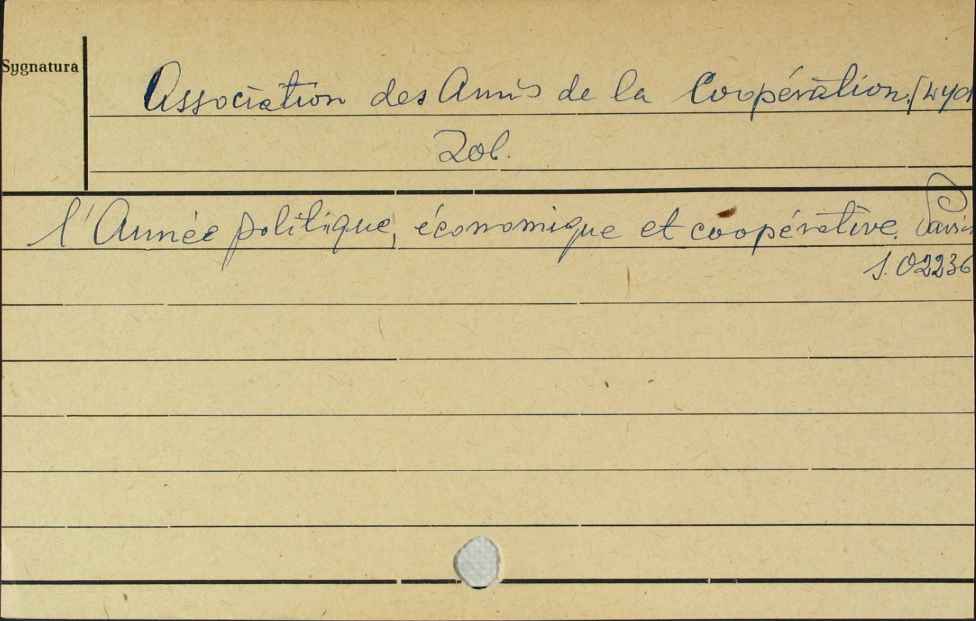 Sygnatura
Association des Amis de la Coopération. [Wyd
Zob.
l'Année politique, économique et coopérative. Paris
S. 02236